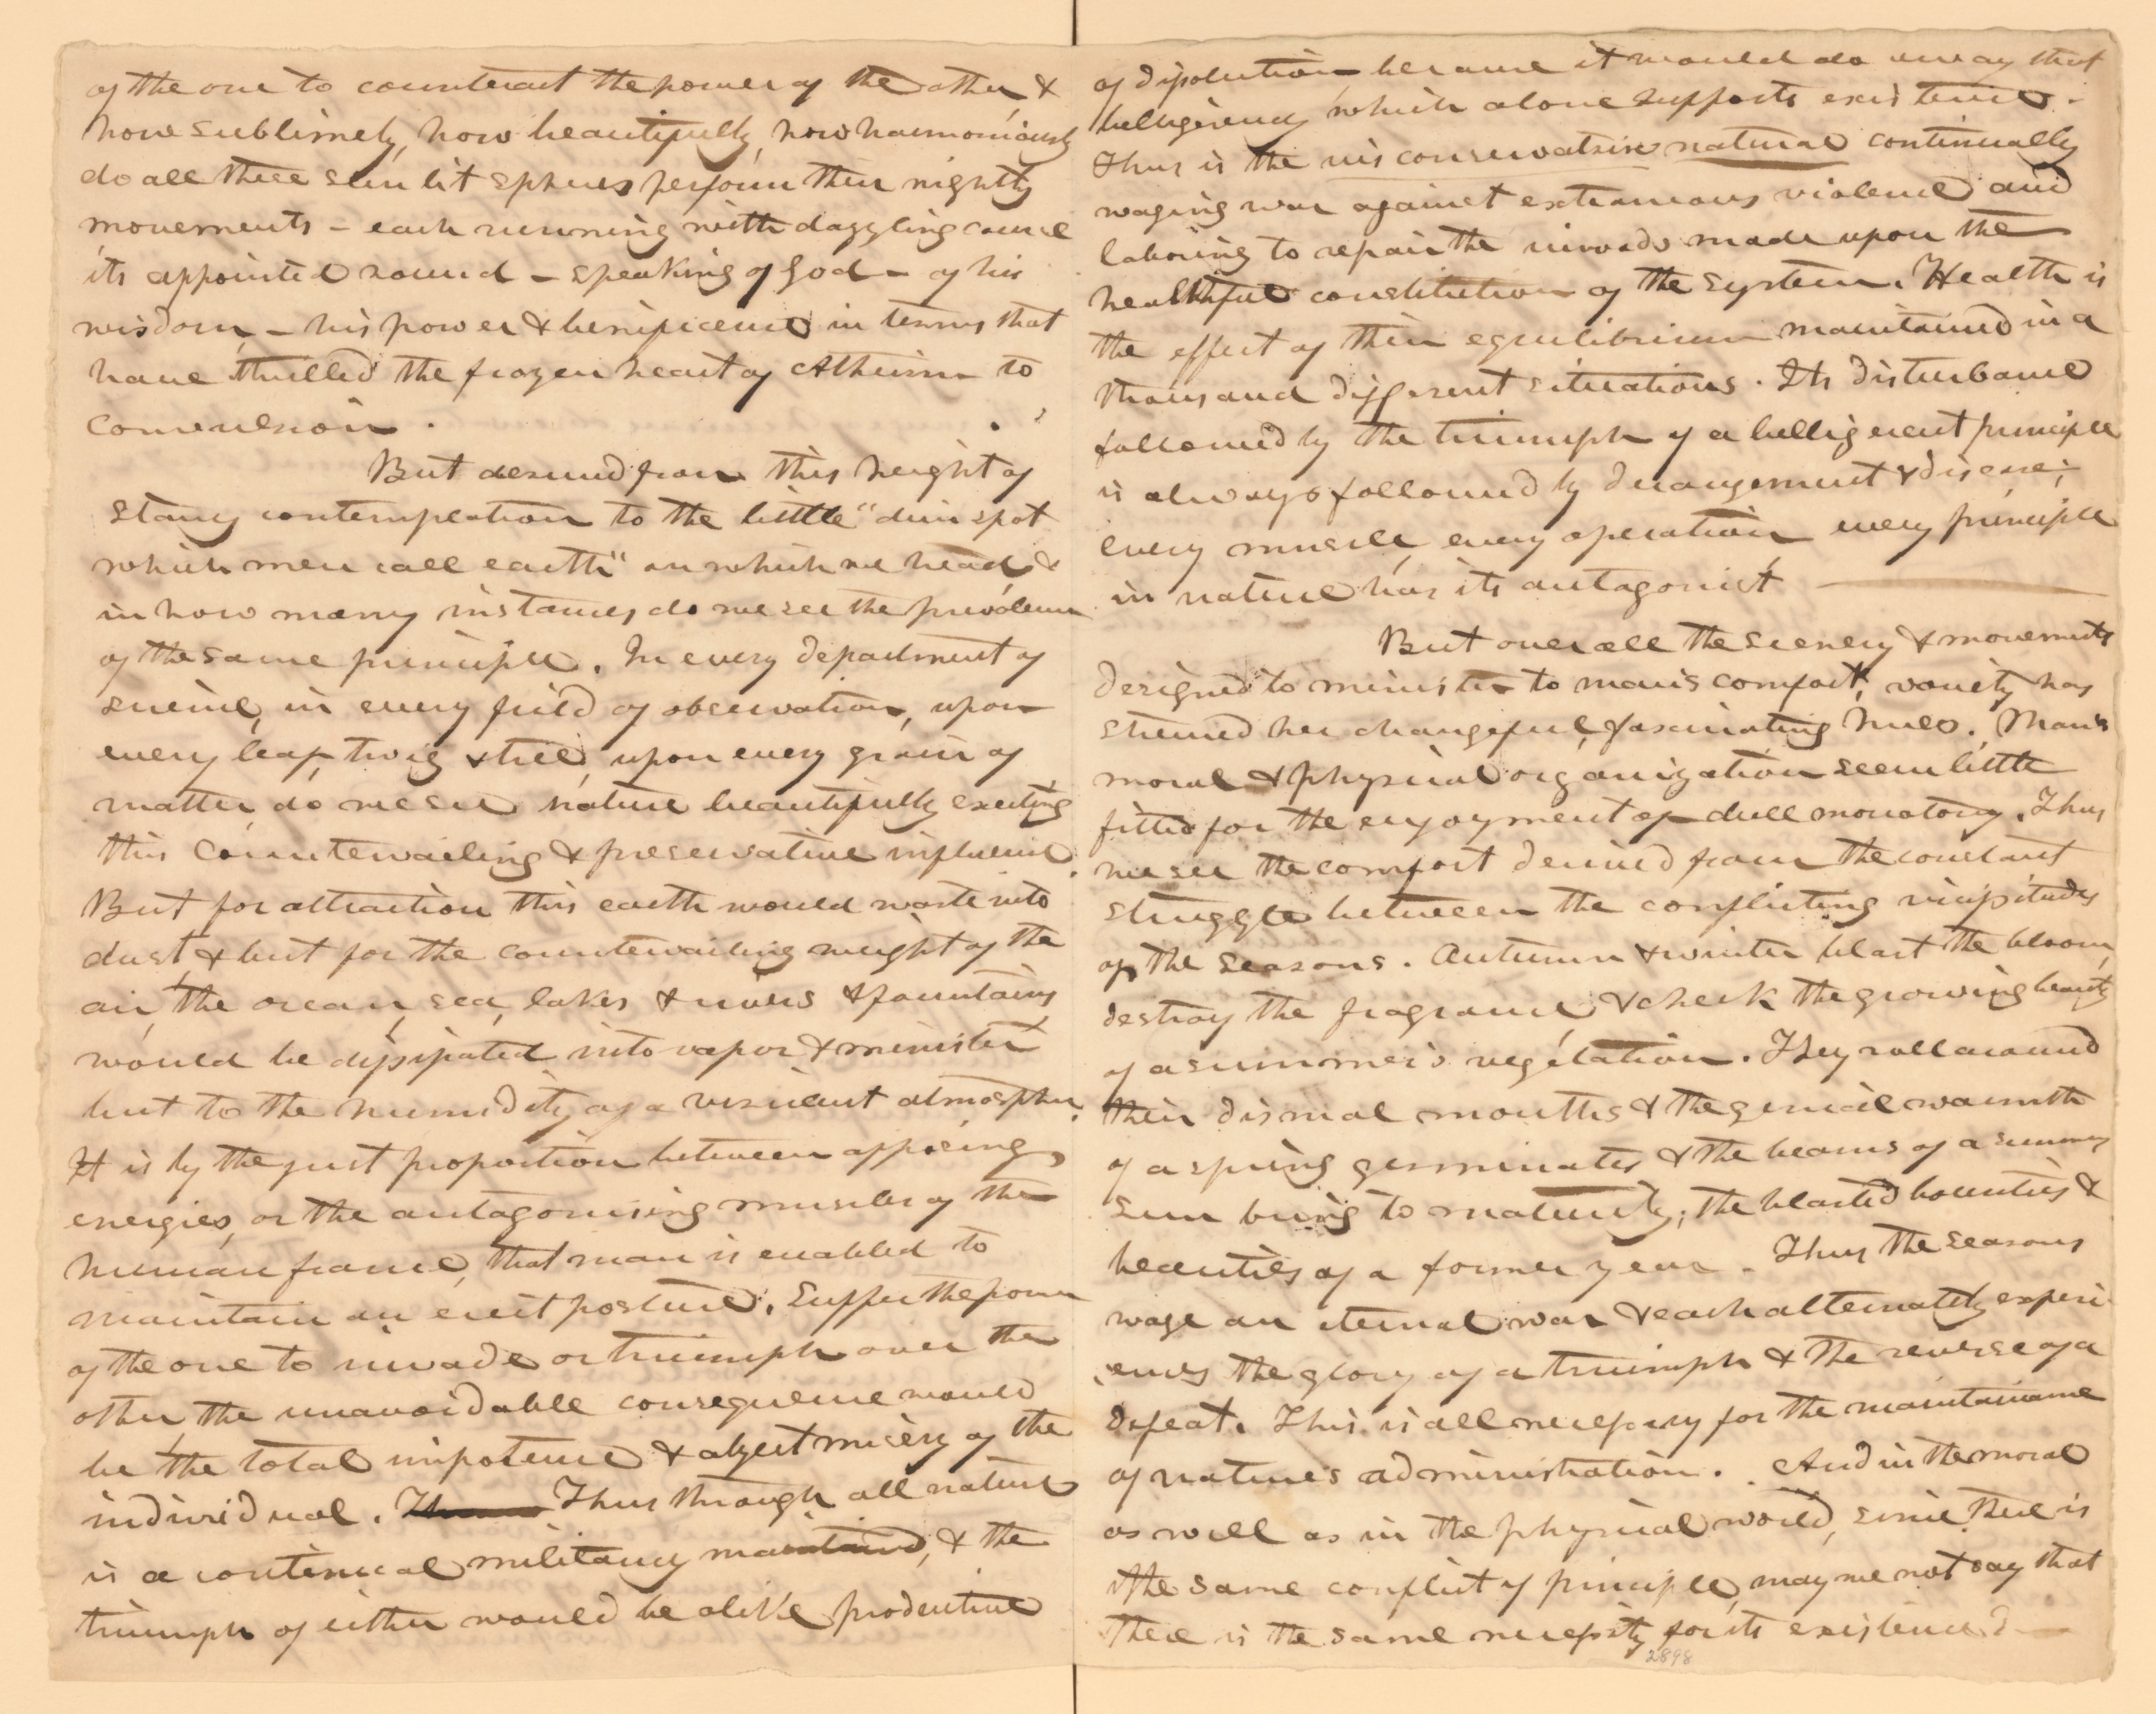 of the one to counteract the power of the other, &
how sublimely, how beautifully, how harmoniously
do all these sun lit spheres perform their nightly
movements – each running with dazzling course
its appointed round – speaking of God – of his
wisdom, – his power & benificence in terms that
have thrilled the frozen heart of Atheism to
conversion.
But descend from this height of
starry contemplation to the little "dim spot
which men call earth" on which we tread, &
in how many instances do we see the prevalence
of the same principle. In every department of
science, in every field of observation, upon
every leaf, twig & tree, upon every grain of
matter, do we see nature beautifully exerting
this countervailing & preservative influence.
But for attraction this earth would waste into
dust & but for the countervailing weight of the
air, the ocean, sea, lakes & rivers & fountains
would be dissipated into vapor & minister
but to the humidity of a atmosphere.
It is by the just proportion between opposing
energies, or the antagonising muscles of the
human frame, that man is enabled to
maintain an erect posture. Suffer the power
of the one to invade or triumph over the
other, the unavoidable consequence would
be the total impotence & abject misery of the
individual. Thus through all nature
is a continual militancy maintained, & the
triumph of either would be alike productive
of dissolution, because it would do away that
belligerency which alone supports existence.
Thus is the vis conservatrix natural continually
waging war against extraneous violence and
laboring to repair the inroads made upon the
healthful constitution of the system. Health is
the effect of their equilibrium maintained in a
thousand different situations. Its disturbance
followed by the triumph of a belligerent principle
is always followed by derangement & disease;
every muscle, every operation, every principle
in nature has its antagonist —
But over all the scenery & movements
designed to minister to man's comfort, variety has
strewed her changeful, fascinating hues. Man's
moral & physical organization seem little
fitted for the enjoyment of dull monotony. Thus
we see the comfort derived from the constant
struggle between the conflicting vicissitudes
of the seasons. Autumn & winter blast the bloom,
destroy the fragrance & check the growing beauty
of a summer's vegetation. They roll around
their dismal months & the genial warmth
of a spring germinates & the beams of a summer
sun bring to maturity, the blasted bounties &
beauties of a former year. Thus the seasons
wage an eternal war & each alternately experi-
ences the glory of a triumph & the reverse of a
defeat. This is all necessary for the maintainance
of nature's administration. And in the moral
as well as in the physical world, since there is
the same conflict of principle, may we not say that
there is the same necessity for its existence –
2898